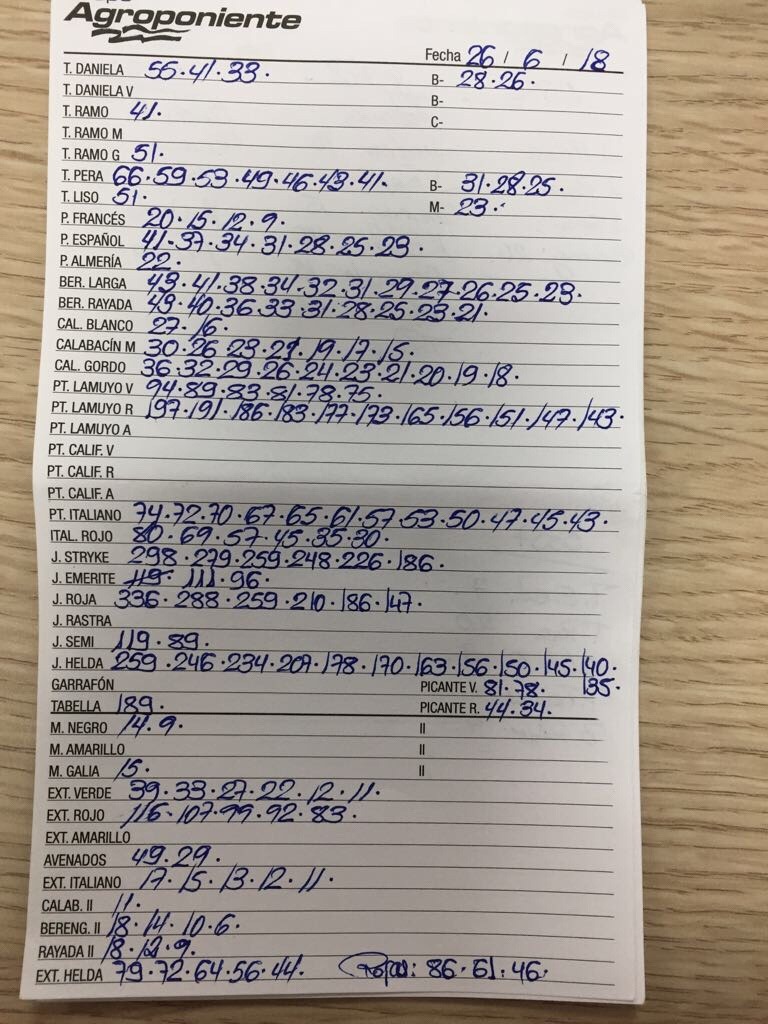 Agroponiente
Fecha 26 / 6 / 18
T. DANIELA 55·41·33· B- 28·26·
T. DANIELA V B-
T. RAMO 41· C-
T. RAMO M
T. RAMO G 51·
T. PERA 66·59·53·49·46·43·41· B- 31·28·25·
T. LISO 51· M- 23·
P. FRANCÉS 20·15·12·9·
P. ESPAÑOL 41·37·34·31·28·25·23·
P. ALMERÍA 22·
BER. LARGA 43·41·38·34·32·31·29·27·26·25·23·
BER. RAYADA 49·40·36·33·31·28·25·23·21·
CAL. BLANCO 27·16·
CALABACÍN M 30·26·23·21·19·17·15·
CAL. GORDO 36·32·29·26·24·23·21·20·19·18·
PT. LAMUYO V 94·89·83·81·78·75·
PT. LAMUYO R 197·191·186·183·177·173·165·156·151·147·143·
PT. LAMUYO A
PT. CALIF. V
PT. CALIF. R
PT. CALIF. A
PT. ITALIANO 74·72·70·67·65·61·57·53·50·47·45·43·
ITAL. ROJO 80·69·57·45·35·30·
J. STRYKE 298·279·259·248·226·186·
J. EMERITE 119· 111·96·
J. ROJA 336·288·259·210·186·147·
J. RASTRA
J. SEMI 119·89·
J. HELDA 259·246·234·207·178·170·163·156·150·145·140·
GARRAFÓN PICANTE V. 81·78· 135·
TABELLA 189· PICANTE R. 44·34·
M. NEGRO 14·9· II
M. AMARILLO II
M. GALIA 15· II
EXT. VERDE 39·33·27·22·12·11·
EXT. ROJO 116·107·99·92·83·
EXT. AMARILLO
AVENADOS 49·29·
EXT. ITALIANO 17·15·13·12·11·
CALAB. II 11·
BERENG. II 18·14·10·6·
RAYADA II 18·12·9·
EXT. HELDA 79·72·64·56·44· 86·61·46·